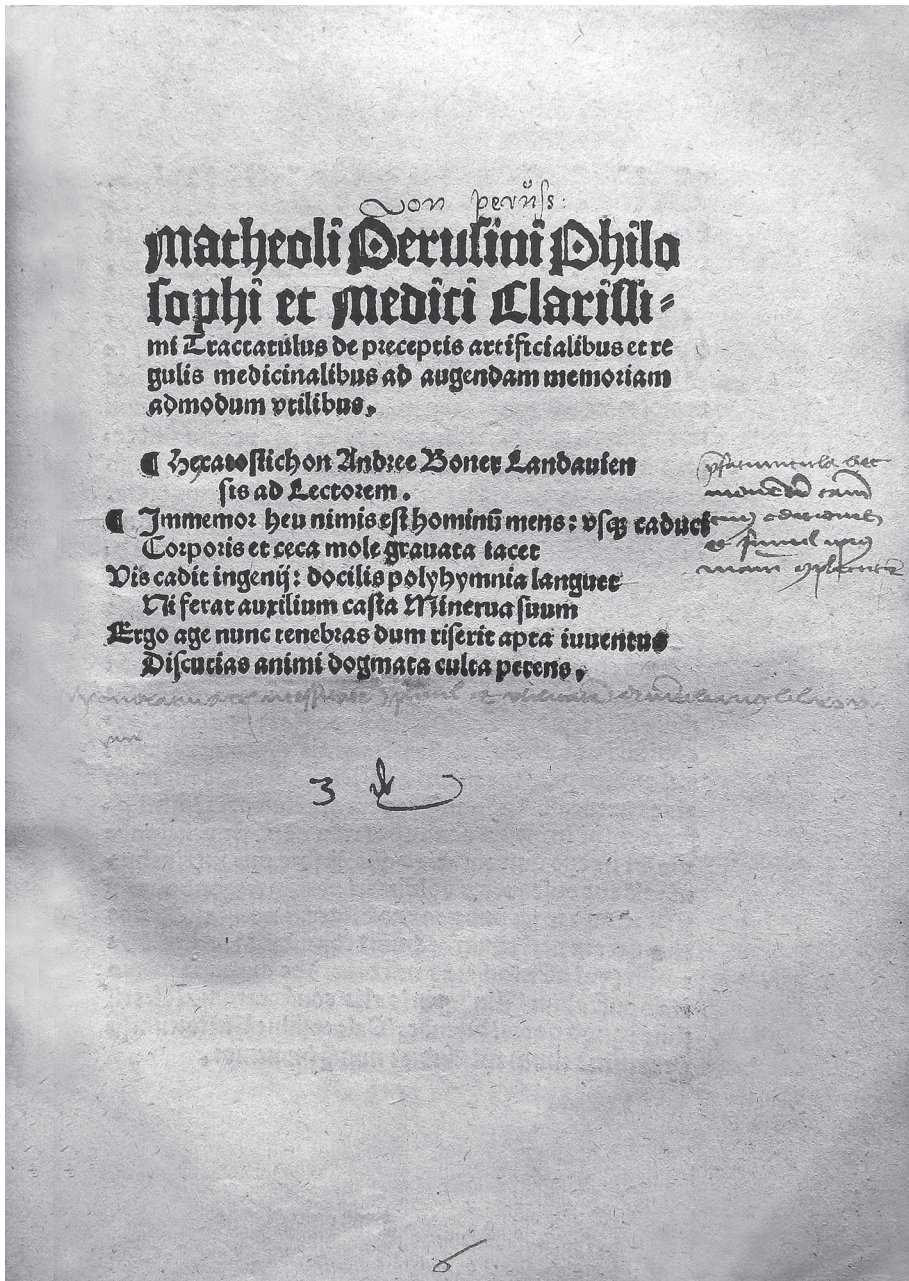 Von peruſs:
Matheoli Peruſini Philo
ſophi et Medici Clariſſi⸗
mi Tractatulus de preceptis artificialibus et re
gulis medicinalibus ad augendam memoriam
admodum vtilibus.
¶ Hexatoſtichon Andree Boner Landauien
ſis ad Lectorem.
¶ Immemor heu nimis eſt hominū mens: vſqꝫ caduci
Corporis et ceca mole grauata iacet
Vis cadit ingenij: docilis polyhymnia languet
Ni ferat auxilium caſta Minerua ſuum
Ergo age nunc tenebras dum riſerit apta iuuentus
Diſcutias animi dogmata culta petens.
3
6